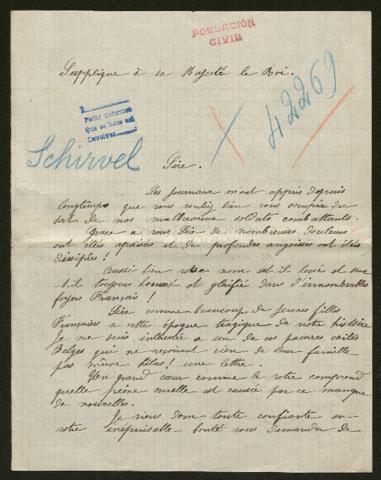 POBLACIÓN
CIVIL
Supplique à sa Majesté le Roi.
42269
Pedir informes
Que se hace así
Devolver
Schirvel
Sire.
Les journaux m'ont appris depuis
longtemps que vous vouliez bien vous occuper du
sort de nos malheureux soldats combattants.
Grace a vous Sire de nombreuses douleurs
ont étés apaisées et de profondes angoisses ont étés
dissipées!
Aussi bien votre nom est-il loué et sera
t-il toujours honoré et glorifié dans d'innombrables
foyers Français!
Sire comme beaucoup de jeunes filles
Françaises a cette époque tragique de notre histoire
Je me suis intéressée a un de ces pauvres exilés
Belges qui ne reçoivent rien de leur famille
pas même hélas! une lettre.
Un grand cœur comme le votre comprend
quelle peine cruelle est causée par ce manque
de nouvelles.
Je viens donc toute confiante en
votre inépuisable bonté vous demander de